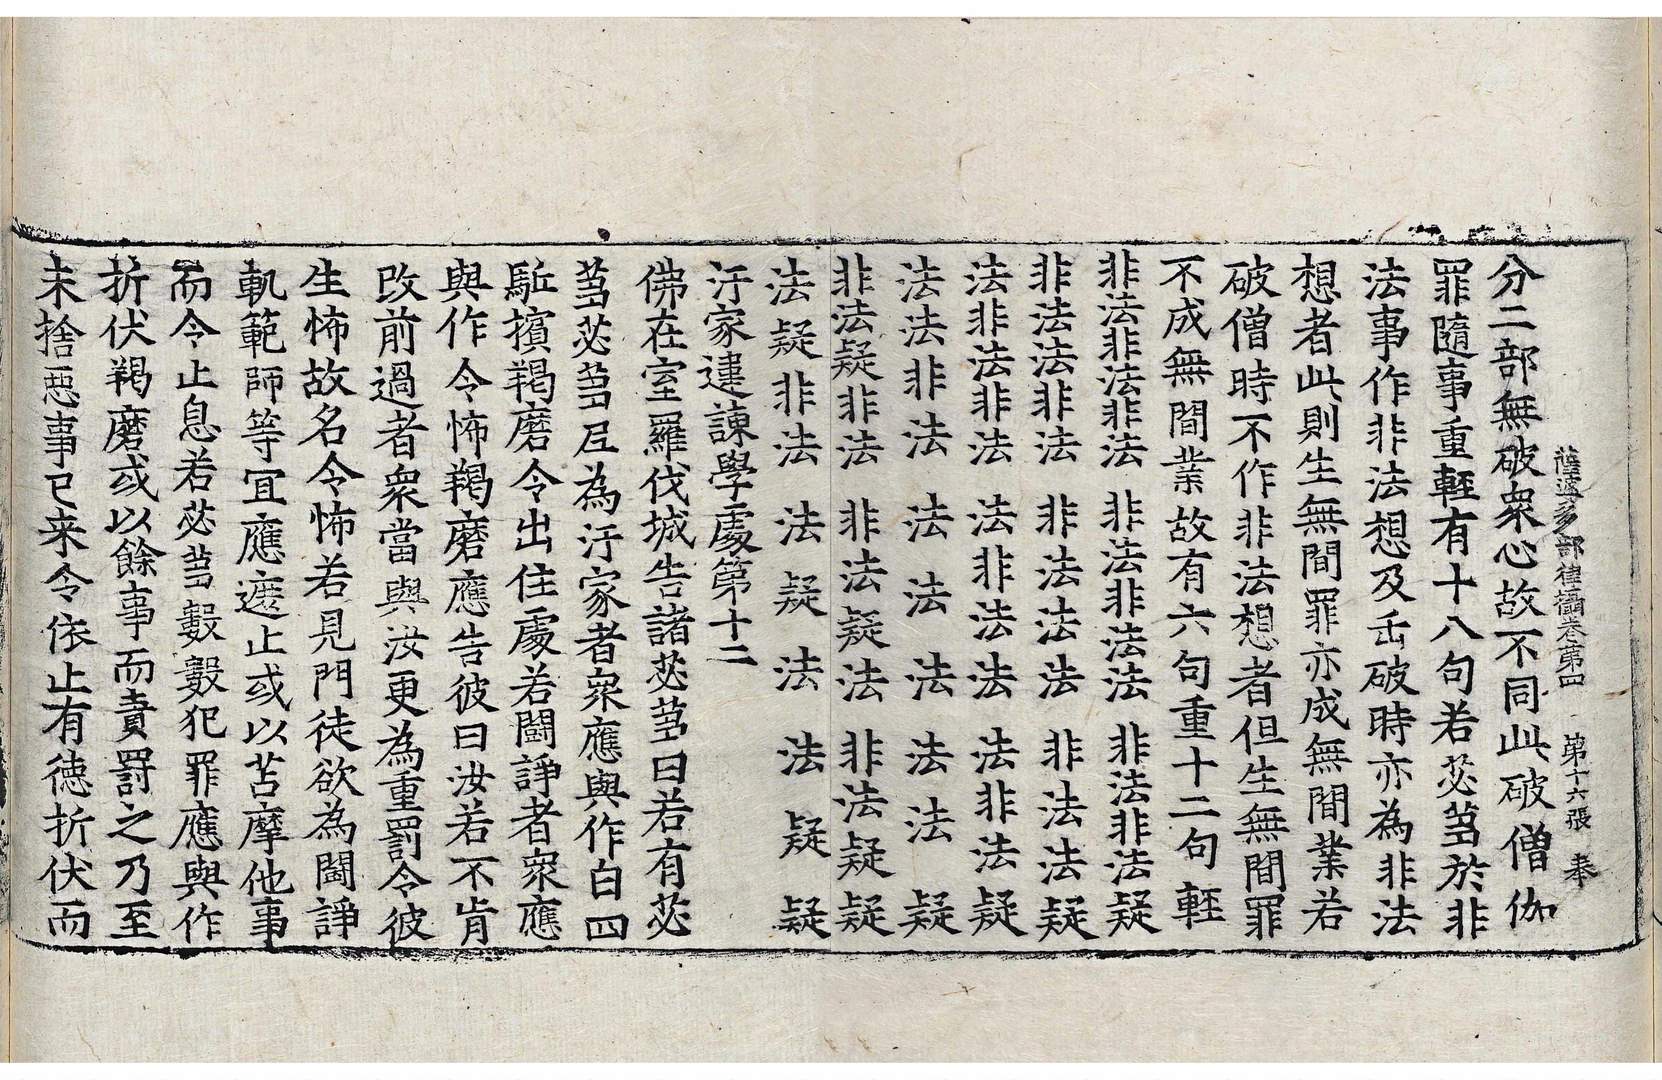 薩婆多部律攝卷第四 第十六張 奉
分二部無破衆心故不同此破僧伽
罪隨事重輕有十八句若苾芻於非
法事作非法想及正破時亦為非法
想者此則生無間罪亦成無間業若
破僧時不作非法想者但生無間罪
不成無間業故有六句重十二句輕
非法非法非法 非法非法法 非法非法疑
非法法非法 非法法法 非法法疑
法非法非法 法非法法 法非法疑
法法非法 法法法 法法疑
非法疑非法 非法疑法 非法疑疑
法疑非法 法疑法 法疑疑
汙家違諫學處第十二
佛在室羅伐城告諸苾芻曰若有苾
芻苾芻尼為汙家者衆應與作白四
駈擯羯磨令出住處若鬪諍者衆應
與作令怖羯磨應告彼曰汝若不肯
改前過者衆當與汝更為重罰令彼
生怖故名令怖若見門徒欲為鬪諍
軌範師等宜應遮止或以苫摩他事
而令止息若苾芻數數犯罪應與作
折伏羯磨或以餘事而責罰之乃至
未捨惡事已来令依止有德折伏而